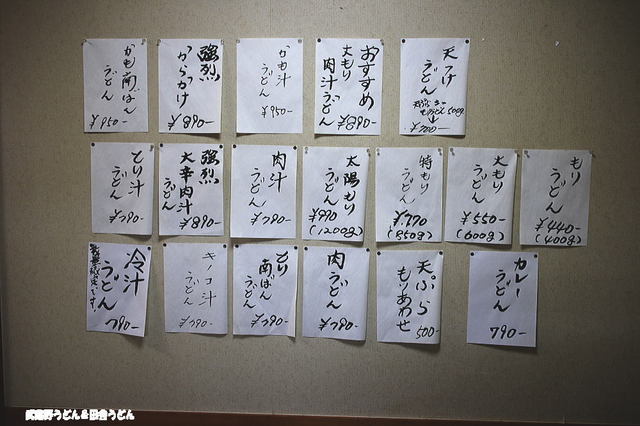 かも南ばん
うどん
¥950-
強烈
からつけ
¥890-
かも汁
うどん
¥950-
おすすめ
大もり
肉汁うどん
¥890-
天つけ
うどん
¥700-
とり汁
うどん
¥790-
強烈
大辛肉汁
うどん
¥890-
肉汁
うどん
¥790-
太陽もり
うどん
¥990
(1200g)
特もり
うどん
¥770
(850g)
大もり
うどん
¥550-
(600g)
もり
うどん
¥440-
(400g)
冷汁
うどん
790-
キノコ汁
うどん
¥790-
とり
南ばん
うどん
¥790-
肉うどん
¥790-
天ぷら
もりあわせ
500-
カレー
うどん
790-
武蔵野うどん&田舎うどん